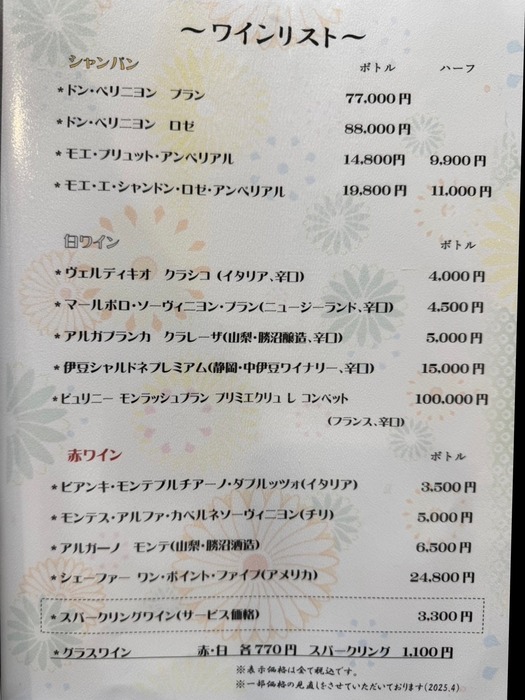 ～ワインリスト～
シャンパン ボトル ハーフ
*ドン・ペリニヨン ブラン 77.000円
*ドン・ペリニヨン ロゼ 88.000円
*モエ・ブリュット・アンペリアル 14.800円 9.900円
*モエ・エ・シャンドン・ロゼ・アンペリアル 19.800円 11.000円
白ワイン ボトル
*ヴェルディキオ クラシコ (イタリア、辛口) 4.000円
*マールボロ・ソーヴィニヨン・ブラン(ニュージーランド、辛口) 4.500円
*アルガブランカ クラレーザ(山梨・勝沼醸造、辛口) 5.000円
*伊豆シャルドネプレミアム(静岡・中伊豆ワイナリー、辛口) 15.000円
*ピュリニー モンラッシュブラン プリミエクリュ レ コンベット 100.000円
(フランス、辛口)
赤ワイン ボトル
*ビアンキ・モンテプルチアーノ・ダブルッツォ(イタリア) 3.500円
*モンテス・アルファ・カベルネソーヴィニヨン(チリ) 5.000円
*アルガーノ モンテ(山梨・勝沼酒造) 6.500円
*シェーファー ワン・ポイント・ファイブ(アメリカ) 24.800円
*スパークリングワイン(サービス価格) 3.300円
*グラスワイン 赤・白 各770円 スパークリング 1.100円
※表示価格は全て税込です。
※一部価格の見直しをさせていただいております(2025.4)